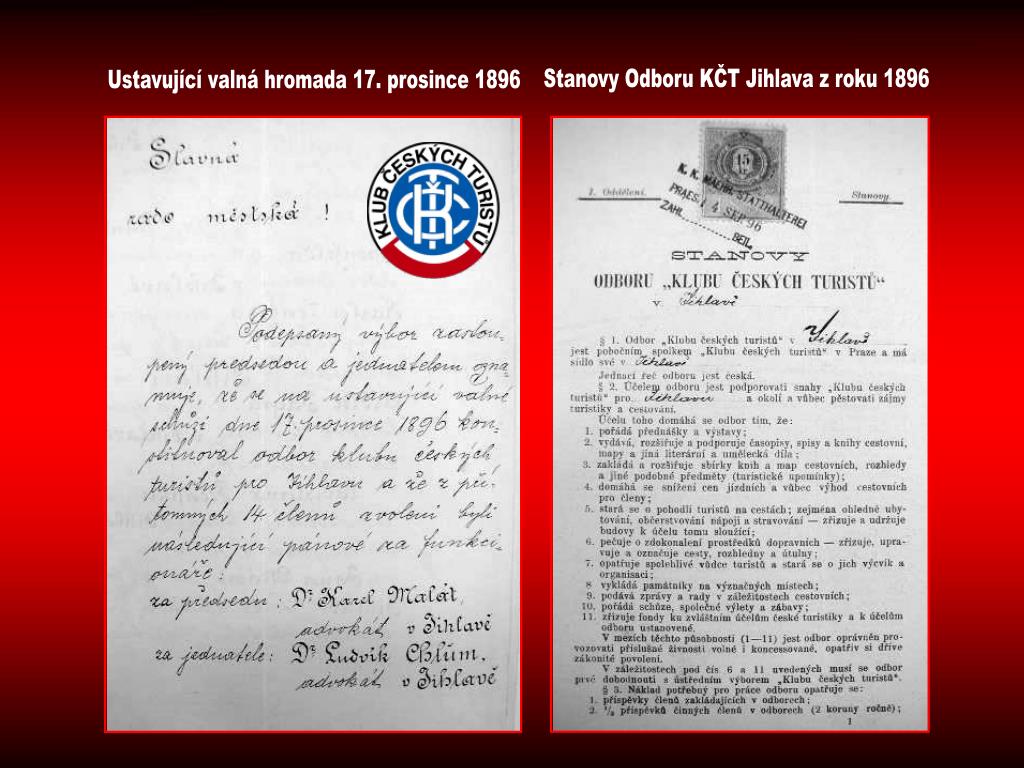 Ustavující valná hromada 17. prosince 1896
Stanovy Odboru KČT Jihlava z roku 1896
Slavná
rado městská !
KLUB ČESKÝCH TURISTŮ
KČT
Podepsaný výbor zastou-
pený předsedou a jednatelem ozna-
muje, že se na ustavující valné
schůzi dne 17. prosince 1896 kon-
stituoval odbor klubu českých
turistů pro Jihlavu a že z pří-
tomných 14 členů zvoleni byli
následující pánové za funkci-
onáře:
za předsedu: Dr Karel Malát,
advokát v Jihlavě
za jednatele: Dr Ludvík Chlum,
advokát v Jihlavě
15
K. K. MÄHR. STATTHALTEREI
PRAES. 4 SEP. 96
ZAHL BEIL.
I. Oddělení.
Stanovy.
STANOVY
ODBORU „KLUBU ČESKÝCH TURISTŮ“
v Jihlavě
§ 1. Odbor „Klubu českých turistů“ v Jihlavě
jest pobočním spolkem „Klubu českých turistů“ v Praze a má
sídlo své v Jihlavě
Jednací řeč odboru jest česká.
§ 2. Účelem odboru jest podporovati snahy „Klubu českých
turistů“ pro Jihlavu a okolí a vůbec pěstovati zájmy
turistiky a cestování.
Účelu toho domáhá se odbor tím, že:
1. pořádá přednášky a výstavy;
2. vydává, rozšiřuje a podporuje časopisy, spisy a knihy cestovní,
mapy a jiná literární a umělecká díla;
3. zakládá a rozšiřuje sbírky knih a map cestovních, rozhledy
a jiné podobné předměty (turistické upomínky);
4. domáhá se snížení cen jízdních a vůbec výhod cestovních
pro členy;
5. stará se o pohodlí turistů na cestách; zejména ohledně uby-
tování, občerstvování nápoji a stravování — zřizuje a udržuje
budovy k účelu tomu sloužící;
6. pečuje o zdokonalení prostředků dopravních — zřizuje, upra-
vuje a označuje cesty, rozhledny a útulny;
7. opatřuje spolehlivé vůdce turistů a stará se o jich výcvik a
organisaci;
8. vykládá památníky na význačných místech;
9. podává zprávy a rady v záležitostech cestovních;
10. pořádá schůze, společné výlety a zábavy;
11. zřizuje fondy ku zvláštním účelům české turistiky a k účelům
odboru ustanovené.
V mezích těchto působností (1—11) jest odbor oprávněn pro-
vozovati příslušné živnosti volné i koncessované, opatřiv si dříve
zákonité povolení.
V záležitostech pod čís 6 a 11 uvedených musí se odbor
prvé dohodnouti s ústředním výborem „Klubu českých turistů“.
§ 3. Náklad potřebný pro práce odboru opatřuje se:
1. příspěvky členů zakládajících v odborech;
2. ½ příspěvků činných členů v odborech (2 koruny ročně);
1